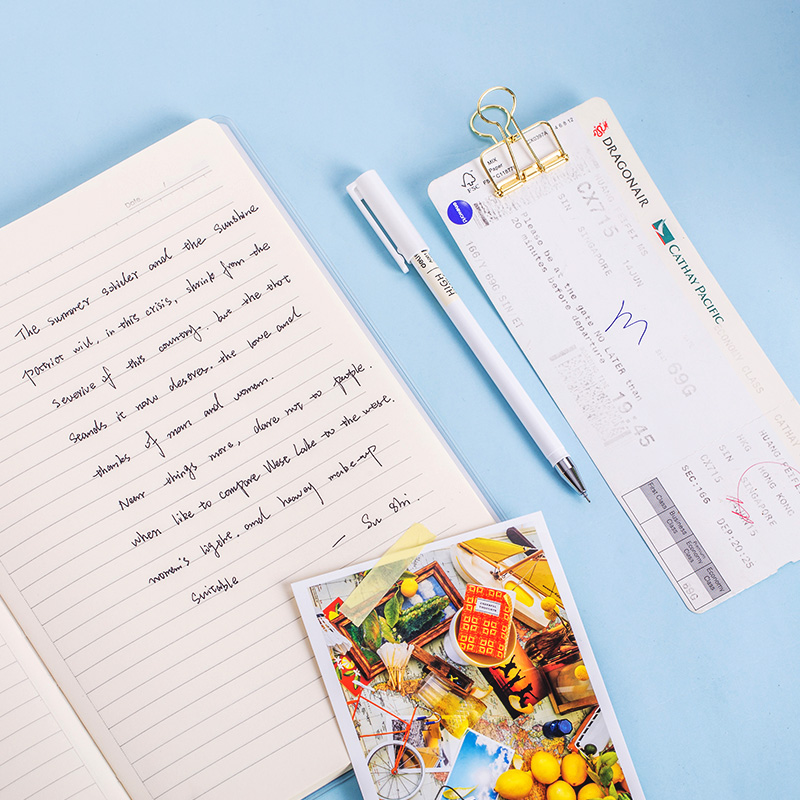 Date / /
The summer and the sunshine
patriot will, in this crisis, shrink from the
of this country. but the thot
stands it now deserves, the love and
thanks of mam and woman.
Near things more, dare not to people.
when like to compare West Lake to the west.
women's and heavy make-up
— Su Shi.
Suitable
HIGH
MIX
Paper
FSC
DRAGONAIR
CATHAY PACIFIC
CX715
SIN SINGAPORE
Please be at the gate NO LATER than
20 minutes before departure
19:45
69G
m
166 SIN
HUANG
HKG HONG KONG
SIN SINGAPORE
CX715
SEC:166 DEP:20:25
First Class
Business Class
Premium Economy Class
Economy Class
69G